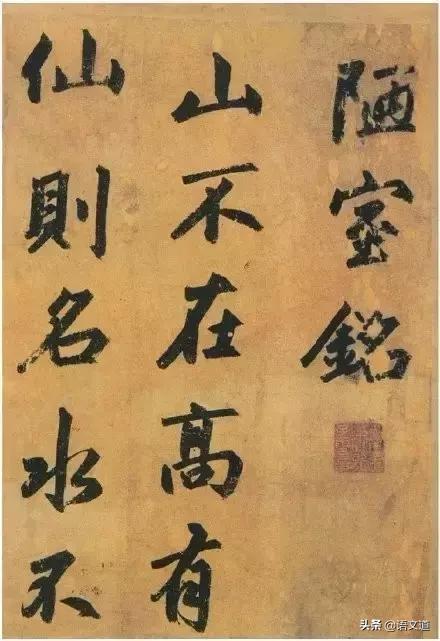 陋室銘
山不在高有
仙則名水不
头条 @语文道